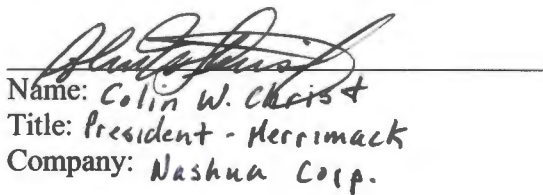 Name: Colin W. Christ
Title: President - Merrimack
Company: Nashua Corp.